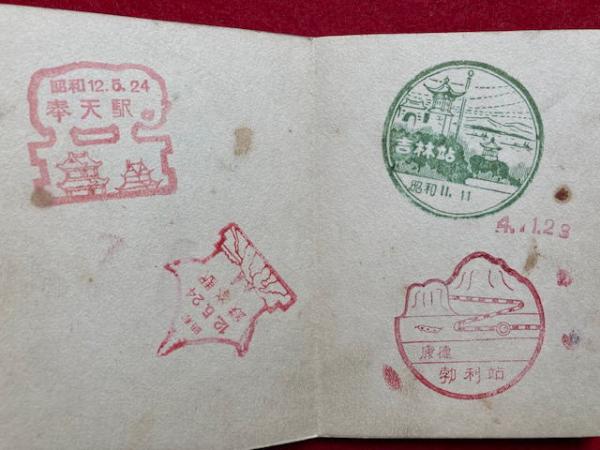 昭和12.5.24
奉天駅
昭和
12.5.24
吉林站
昭和11.11
4.1.23
康德
勃利站